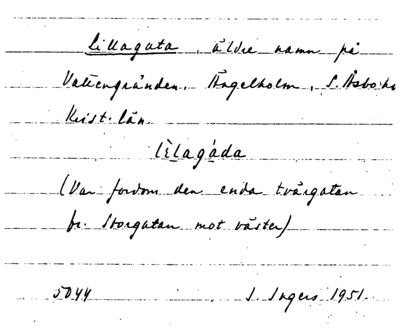 Lillagata, äldre namn på
Vattengränden, Ängelholm, S. Åsbo hd
Krist. län.
lìlagáda
(Var fordom den enda tvärgatan
fr. Storgatan mot väster)
5044 I. Ingers 1951.